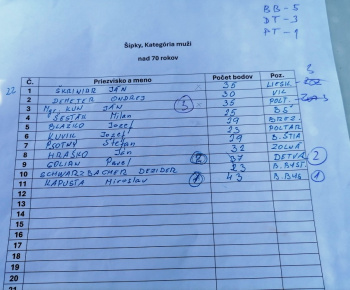 BB - 5
DT - 3
PT - 1
Šípky, Kategória muži
nad 70 rokov
Č. Priezvisko a meno Počet bodov Poz.
1 ŠKRINIAR JÁN 35
2 DEMETER ONDREJ 30 VIC
3 Mgr. KUN JÁN 3 35 POLT.
4 ŠESTÁK Milan 25 BB
5 BLAŽKO Jozef 29 BREZ
6 KUVIK Jozef 23 POLTÁR
7 PSOTNÝ Štefan 19 B. ŠTIA
8 HRAŠKO Ján 32 ZOLNÁ
9 GOLIAN Pavel 2 37 DETVA 2
10 SCHWARZBACHER DEZIDER 23 B. BYST.
11 KAPUSTA Miroslav 1 43 1
12
13
14
15
16
17
18
19
20